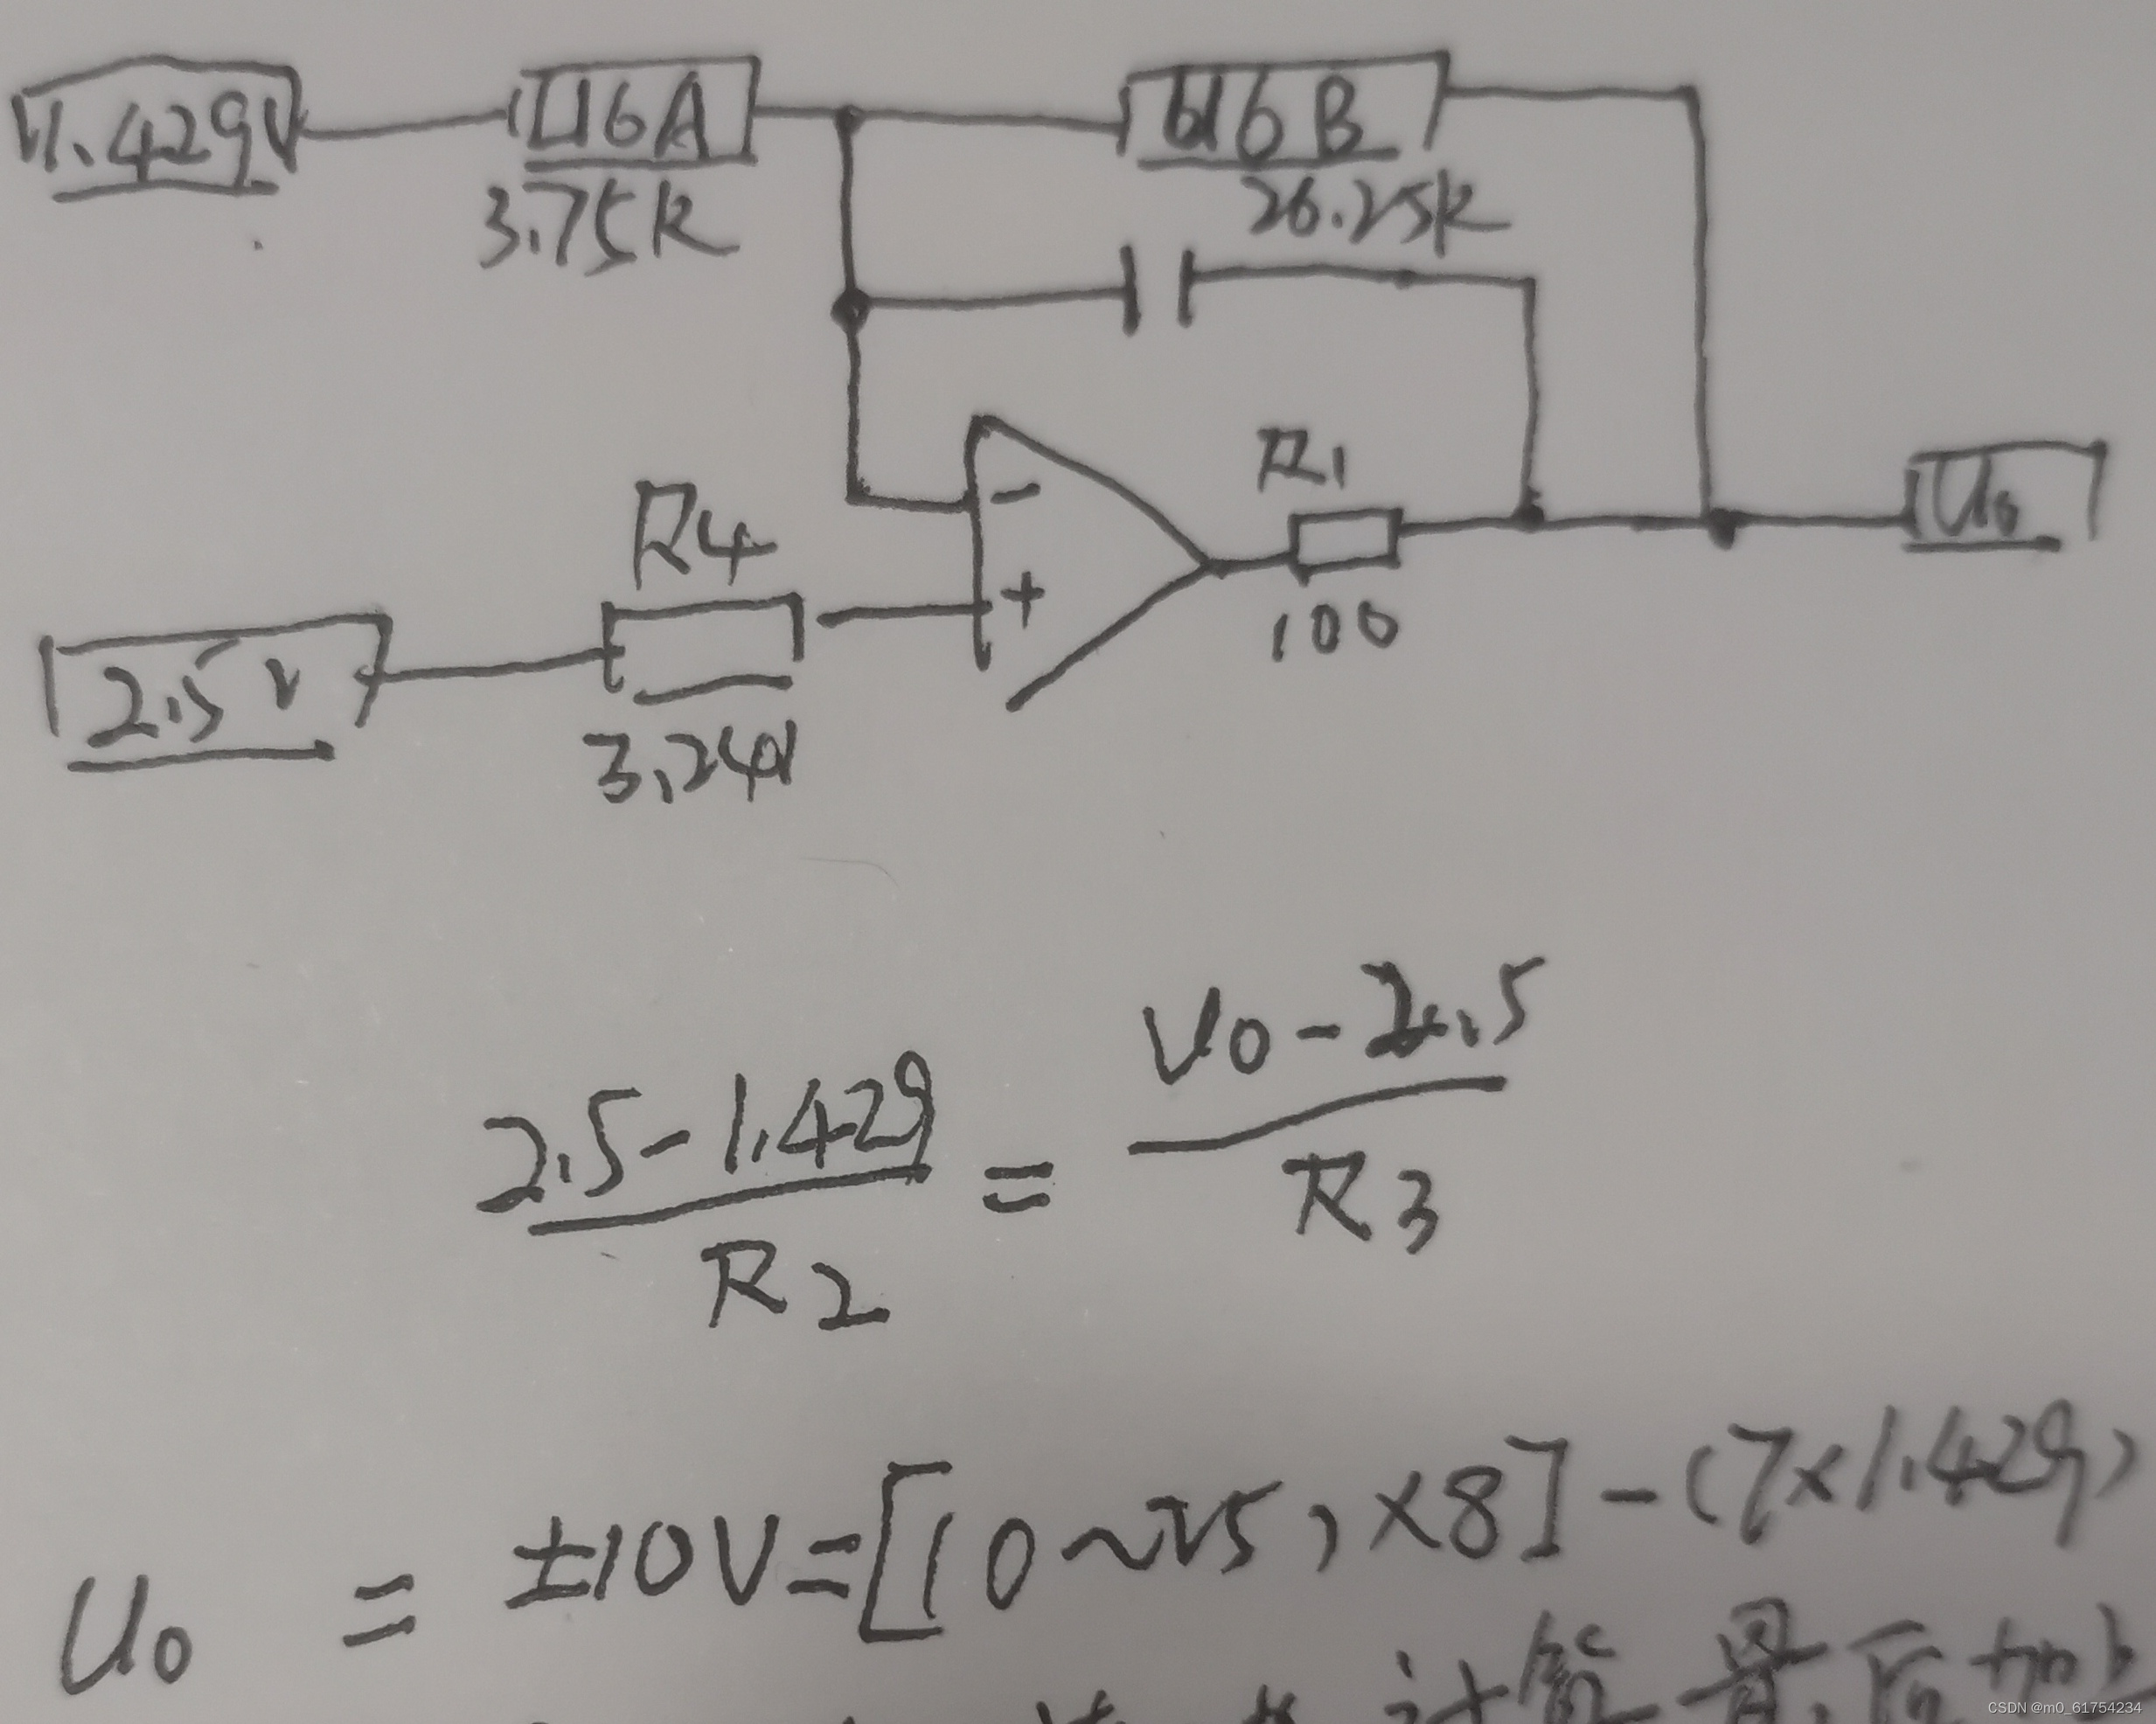 1.429V
U6A
U6B
3.75K
26.25K
R1
100
U0
R4
2.5V
3.24
2.5-1.429
R2
=
U0-2.5
R3
U0 = ±10V=[(0~2.5)×8]-(7×1.429)
计算
CSDN @m0_61754234